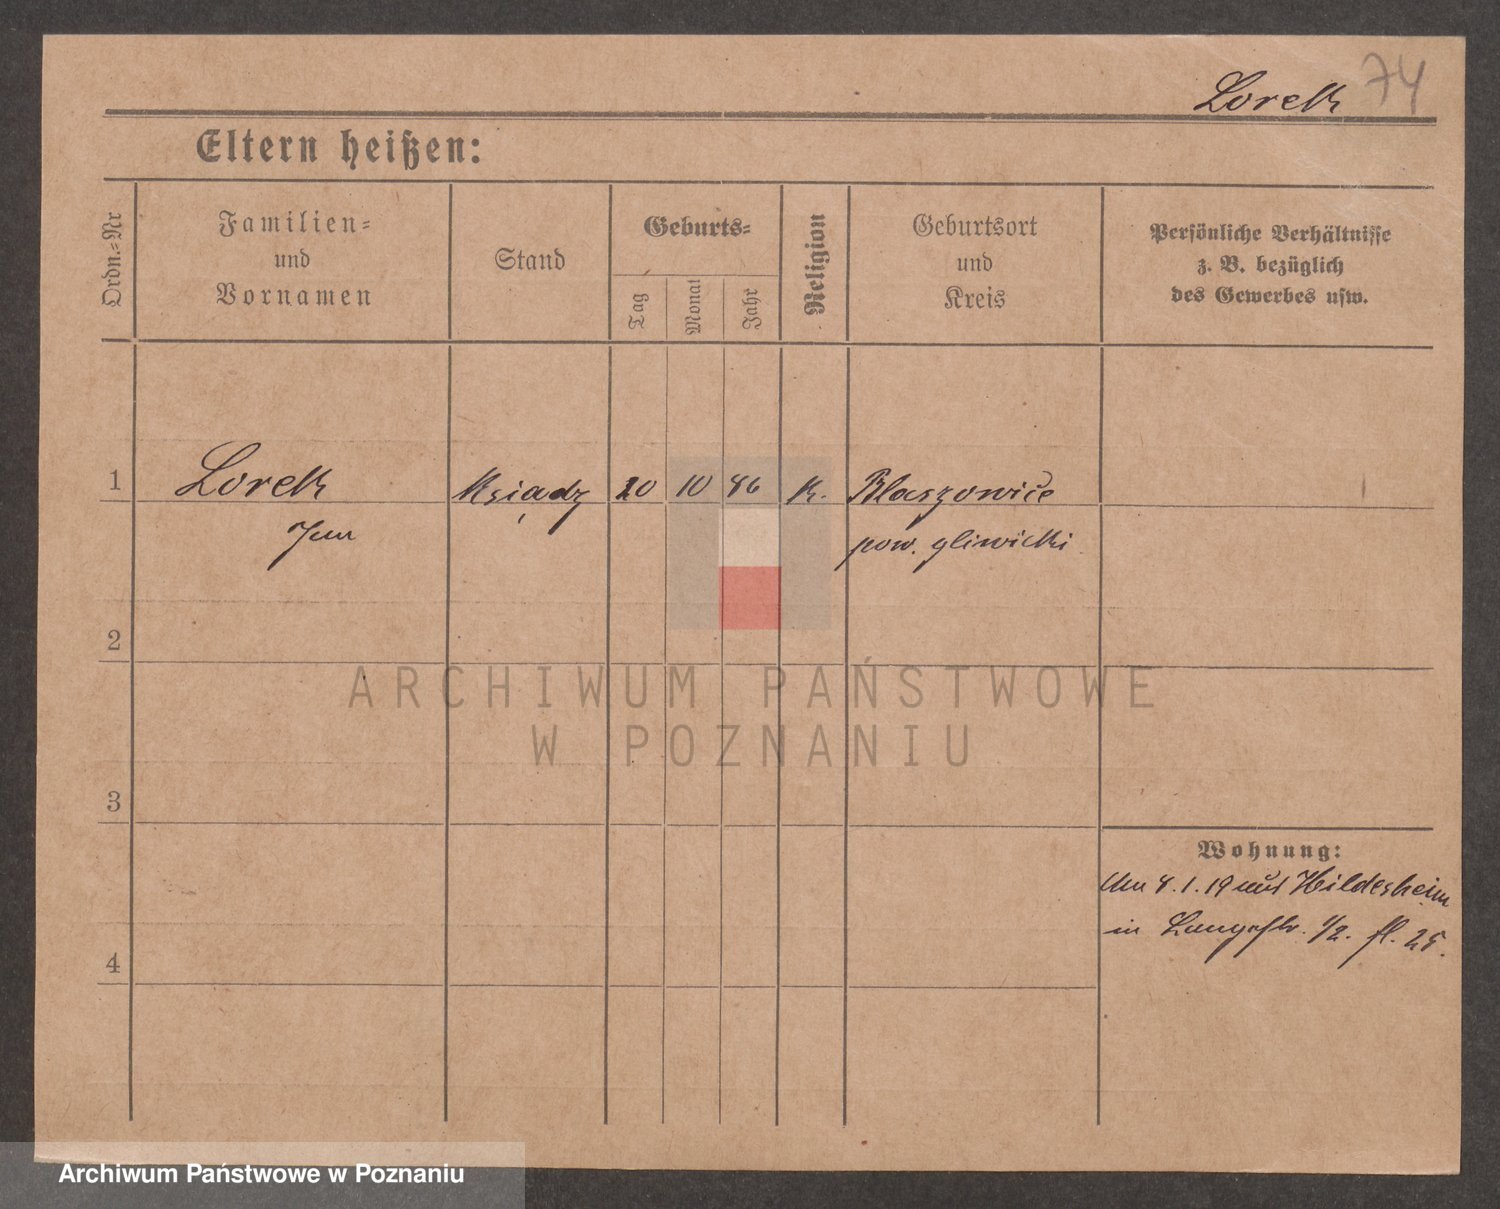 Lorek 74
Eltern heißen:
Ordn.=Nr
Familien=
und
Vornamen
Stand
Geburts=
Tag
Monat
Jahr
Religion
Geburtsort
und
Kreis
Persönliche Verhältnisse
z. B. bezüglich
des Gewerbes usw.
1 Lorek Ksiądz 20 10 86 k. Blaszowice
Jan pow. gliwicki
2
3
4
Wohnung:
4.1.19 aus Hildesheim
in Langestr. 1/2. fl. 25.
ARCHIWUM PAŃSTWOWE
W POZNANIU
Archiwum Państwowe w Poznaniu